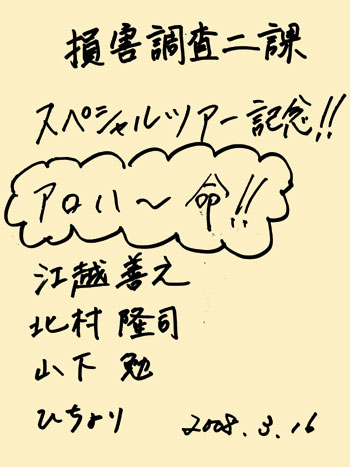 損害調査二課
スペシャルツアー記念!!
アロハ〜命!!
江越善之
北村隆司
山下勉
ひちょり 2008.3.16